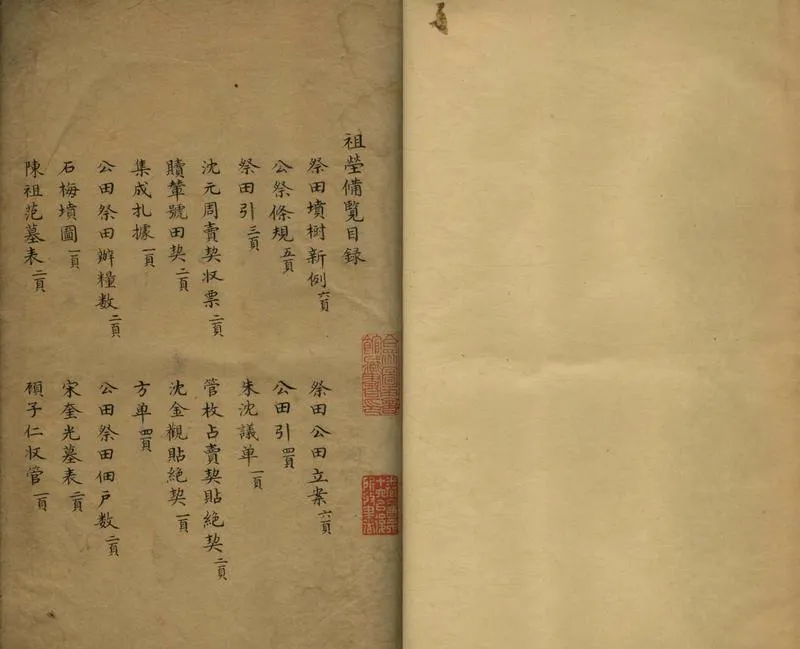 祖塋備覽目錄
祭田墳樹新例 六頁
祭田公田立案 六頁
公祭條規 五頁
公田引 四頁
祭田引 三頁
朱沈議单 一頁
沈元周賣契收票 二頁
管枚占賣契貼絶契 二頁
贖葦號田契 二頁
沈金觀貼絶契 一頁
集成扎據 一頁
方单 四頁
公田祭田辦糧数 二頁
公田祭田佃戶数 二頁
石梅墳圖 一頁
宋奎光墓表 二頁
陳祖范墓表 二頁
頋子仁收管 一頁